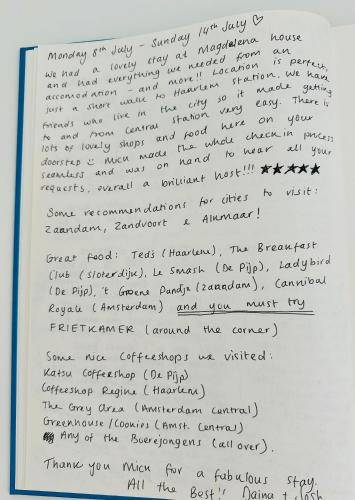 Monday 8th July - Sunday 14th July ♡
We had a lovely stay at Magdalena house
and had everything we needed from an
accomodation - and more!! Location is perfect,
just a short walk to Haarlem station. We have
friends who live in the city so it made getting
to and from central station very easy. There is
lots of lovely shops and food here on your
doorstep :) Mich made the whole check in process
seamless and was on hand to hear all your
requests, overall a brilliant host!!! ★★★★★
Some recommendations for cities to visit:
Zaandam, Zandvoort & Alkmaar!
Great food: Teds (Haarlem), The Breakfast
Club (Sloterdijk), Le Smash (De Pijp), Ladybird
(De Pijp), 't Groene Pandje (Zaandam), Cannibal
Royale (Amsterdam) and you must try
FRIETKAMER (around the corner)
Some nice Coffeeshops we visited:
Katsu Coffeeshop (De Pijp)
Coffeeshop Regine (Haarlem)
The Grey Area (Amsterdam Central)
Greenhouse / Cookies (Amst. Central)
Any of the Boerejongens (all over).
Thank you Mich for a fabulous stay.
All the Best!! Daina + Josh